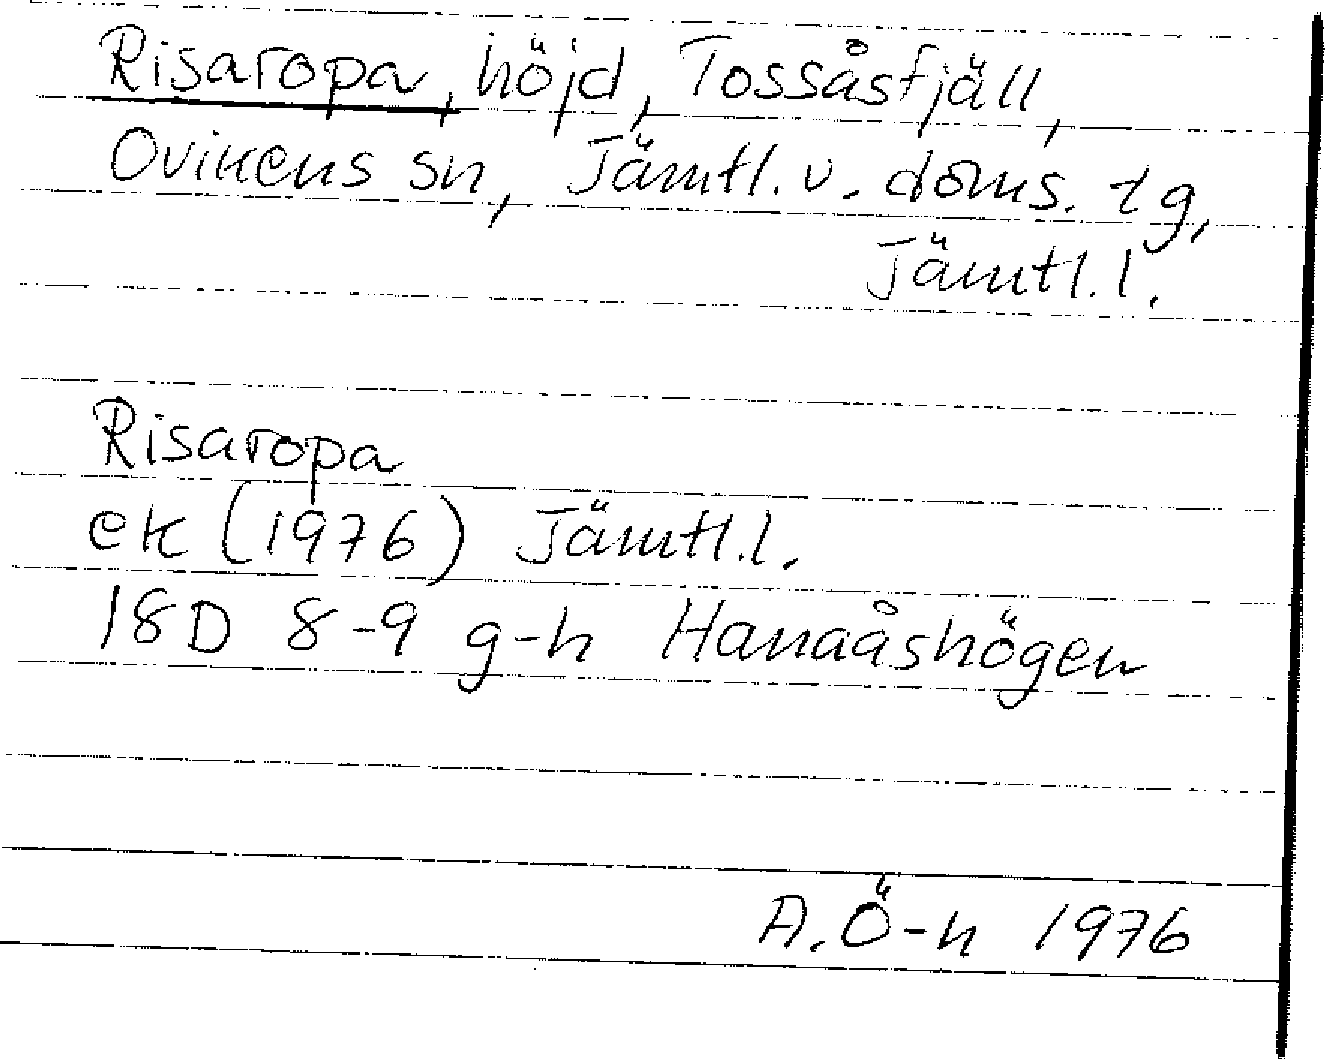 Risaropa, höjd, Tossåsfjäll,
Ovikens sn, Jämtl. v. doms. tg,
Jämtl. l.
Risaropa
ek (1976) Jämtl. l.
18D 8-9 g-h Hanaåshögen
A. Ö-n 1976